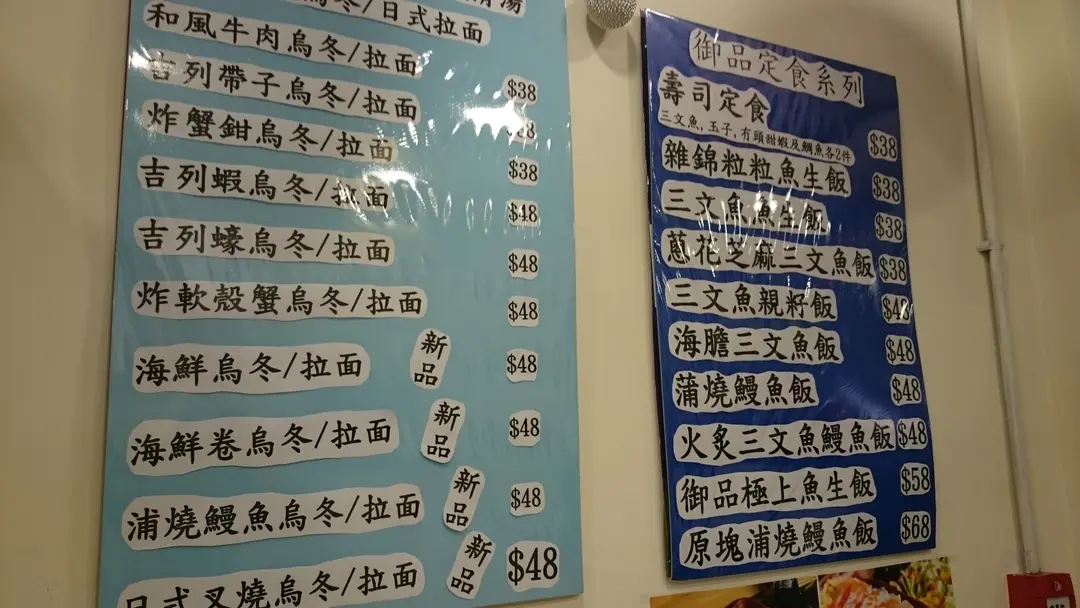 烏冬/日式拉面
和風牛肉烏冬/拉面 $38
吉列帶子烏冬/拉面
炸蟹鉗烏冬/拉面 $38
吉列蝦烏冬/拉面 $48
吉列蠔烏冬/拉面 $48
炸軟殼蟹烏冬/拉面 $48
海鮮烏冬/拉面 新品 $48
海鮮卷烏冬/拉面 新品 $48
浦燒鰻魚烏冬/拉面 新品 $48
日式叉燒烏冬/拉面 新品 $48
御品定食系列
壽司定食
三文魚,玉子,有頭甜蝦及鯛魚各2件 $38
雜錦粒粒魚生飯 $38
三文魚魚生飯 $38
蔥花芝麻三文魚飯 $38
三文魚親籽飯 $48
海膽三文魚飯 $48
蒲燒鰻魚飯 $48
火炙三文魚鰻魚飯 $48
御品極上魚生飯 $58
原塊浦燒鰻魚飯 $68